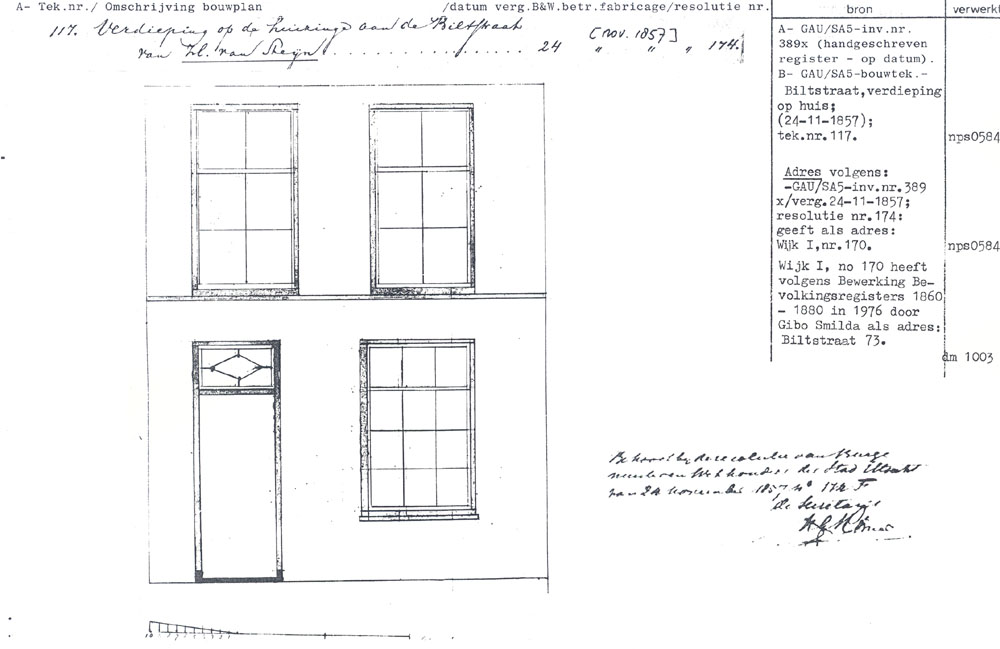 A- Tek.nr./ Omschrijving bouwplan /datum verg.B&W.betr.fabricage/resolutie nr.
117. Verdieping op de huizinge aan de Biltstraat [nov. 1857]
van Zl. van Steijn 24 " " " 174.
bron
verwerkt
A- GAU/SA5-inv.nr.
389x (handgeschreven
register - op datum).
B- GAU/SA5-bouwtek.-
Biltstraat,verdieping
op huis;
(24-11-1857);
tek.nr.117.
nps0584
Adres volgens:
-GAU/SA5-inv.nr.389
x/verg.24-11-1857;
resolutie nr.174:
geeft als adres:
Wijk I,nr.170.
nps0584
Wijk I, no 170 heeft
volgens Bewerking Be-
volkingsregisters 1860
- 1880 in 1976 door
Gibo Smilda als adres:
Biltstraat 73.
dm 1003
Behoort bij de resolutie van Burge
meester en Wethouders der Stad Utrecht
van 24 November 1857 No 174 F
de Secretaris
10